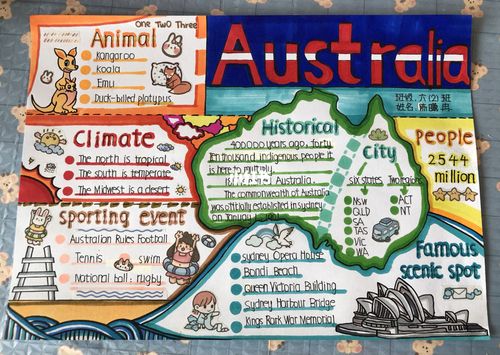 One Two Three
Animal
Kangaroo
Koala
Emu
Duck-billed platypus
Australia
班级:六(2)班
姓名:
Climate
The north is tropical
The south is temperate
The Midwest is a desert
Historical
400000 years ago, forty
Ten thousand indigenous people it
is here to multiply.
Australia.
The commonwealth of Australia
was officially established in sydney
on
City
six states
NSW
QLD
SA
TAS
VIC
WA
Two regions
ACT
NT
People
2544
million
Sporting event
Australian Rules Football
Tennis swim
National ball: rugby
Sydney Opera House
Bondi Beach
Queen Victoria Building
Sydney Harbour Bridge
Kings Park War Memorial
Famous
scenic spot